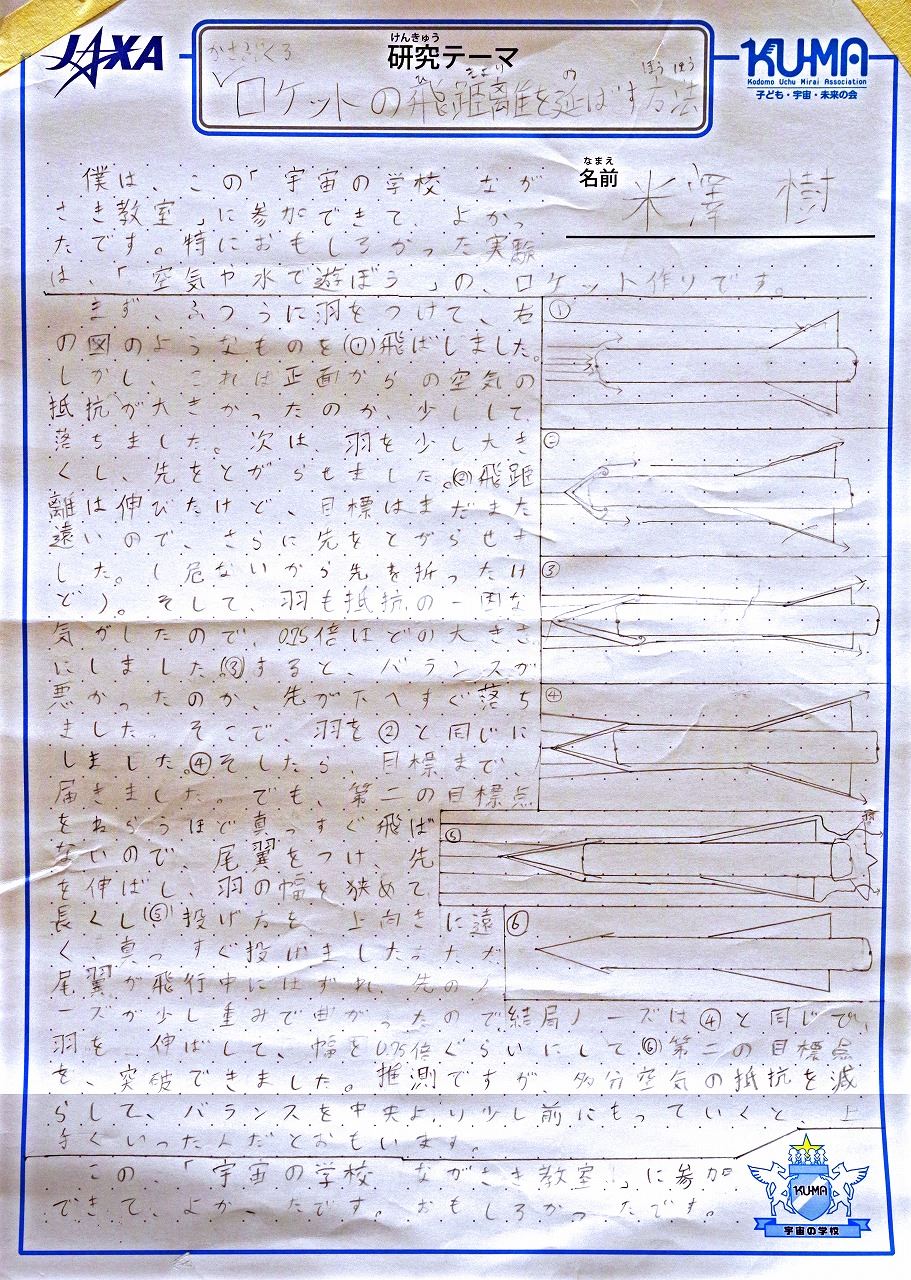 JAXA
けんきゅう
研究テーマ
かさざくろ
ひ きょり の ほうほう
ロケットの飛距離を延ばす方法
KU-MA
Kodomo Uchu Mirai Association
子ども・宇宙・未来の会
なまえ
名前
米澤 樹
僕は、この「宇宙の学校 なが
さき教室」に参加できて、よかっ
たです。特におもしろかった実験
は、「空気や水で遊ぼう」の、ロケット作りです。
まず、ふつうに羽をつけて、右
の図のようなものを(①)飛ばしました。
しかし、これは正面からの空気の
抵抗が大きかったのか、少しして
落ちました。次は、羽を少し大き
くし、先をとがらせました。(②)飛距
離は伸びたけど、目標はまだまだ
遠いので、さらに先をとがらせま
した。(危ないから先を折ったけ
ど)。そして、羽も抵抗の一因な
気がしたので、0.75倍ほどの大きさ
にしました(③)すると、バランスが
悪かったのか、先が下へすぐ落ち
ました。そこで、羽を②と同じに
しました。④そしたら、目標まで、
届きました。でも、第二の目標点
をねらうほど真っすぐ飛ば
ないので、尾翼をつけ、先
を伸ばし、羽の幅を狭めて
長くし(⑤)投げ方を、上向きに遠
く、真っすぐ投げました。ただ
尾翼が飛行中にはずれ、先のノ
ーズが少し重みで曲がったので結局ノーズは④と同じで、
羽を、伸ばして、幅を0.75倍ぐらいにして⑥第二の目標点
を、突破できました。推測ですが、多分空気の抵抗を減
らして、バランスを中央より少し前にもっていくと、上
手くいったんだとおもいます。
この「宇宙の学校 ながさき教室」に参加
できて、よかったです。おもしろかったです。
①
②
③
④
⑤
⑥
KU-MA
宇宙の学校